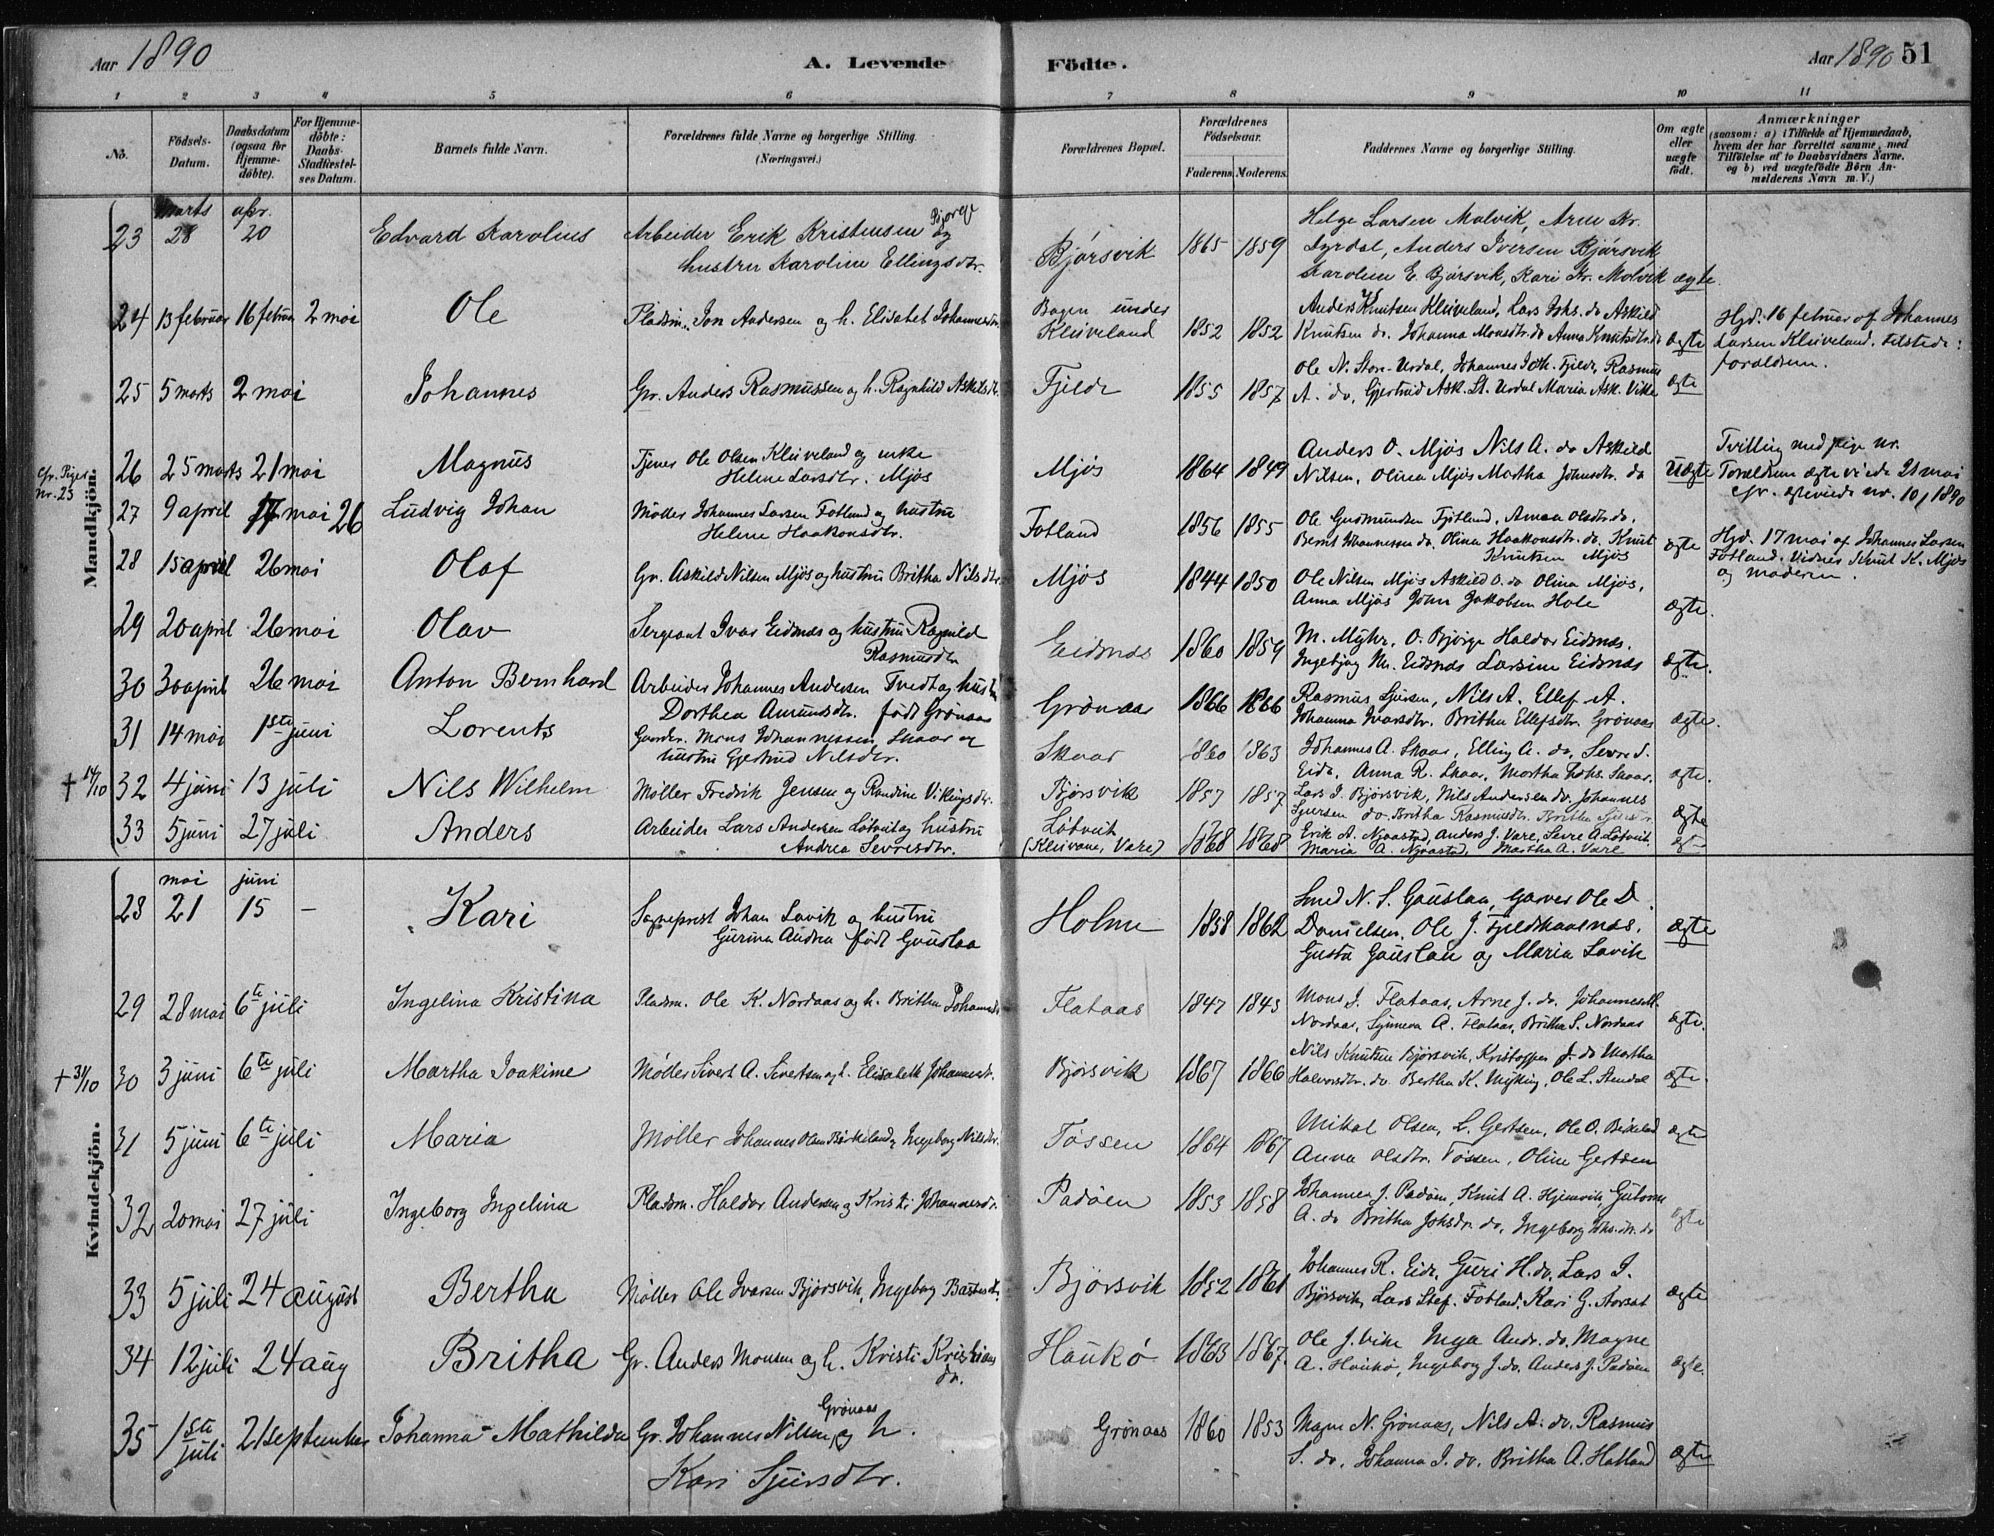 Aar 1890
A. Levende Födte.
Aar 1890 51
1 2 3 4 5 6 7 8 9 10 11
No.
Födsels-Datum.
Daabsdatum (ogsaa for Hjemme-döbte).
For Hjemme-döbte: Daabs-Stadfæstel-ses Datum.
Barnets fulde Navn.
Forældrenes fulde Navne og borgerlige Stilling. (Næringsvei.)
Forældrenes Bopæl.
Forældrenes Födselsaar.
Faderens. Moderens.
Faddernes Navne og borgerlige Stilling.
Om ægte eller uægte födt.
Anmærkninger (saasom: a) i Tilfælde af Hjemmedaab, hvem der har forrettet samme, med Tilföielse af to Daabsvidners Navne, og b) ved uægtefödte Börn Anmelderens Navn m. V.)
Mandkjön.
23 marts 28 apr. 20 Edvard Karolius Arbeider Erik Kristensen Bjorge og hustru Karoline Ellingsdtr. Bjørsvik 1865 1859 Helge Larsen Molvik, Arne Kr. Dyrdal, Anders Iversen Bjørsvik Karoline E. Bjørsvik, Kari Kr. Molvik ægte.
24 13 februar 16 februar 2 mai Ole Pladsm. Jon Andersen og h. Elisabet Johannesdtr. Bogen under Kleiveland 1852 1852 Anders Knutsen Kleiveland, Lars Johs. do Askild Knutsen do. Johanna Monsdtr. do Anna Knutsdtr. do ægte Hjd. 16 februar af Johannes Larsen Kleiveland. tilstede: foraldren.
25 5 marts 2 mai Johannes Gr. Anders Rasmussen og h. Ragnhild Askilsdtr. Fjelde 1855 1857 Ole N. Store-Urdal, Johannes Joh. Fjelde, Rasmus A. do, Gjertrud Ask. St. Urdal Maria Ask. Vike ægte
cfr. Piger nr. 23
26 25 marts 21 mai Magnus Tjener Ole Olsen Kleiveland og enke Helene Larsdtr. Mjøs Mjøs 1864 1849 Anders O. Mjøs Nils A. do Askild Nilsen, Olina Mjøs Martha Johnsdtr. do Uægte Tvilling med pige nr. Foraldren ægteviede 21 mai cfr. ægteviede nr. 10, 1890
27 9 april 17 mai 26 Ludvig Johan Møller Johannes Larsen Fotland og hustru Helene Haakonsdtr. Fotland 1856 1855 Ole Gudmundsen Fjotland, Anna Olsdtr. do. Bernt Johannessen do, Olina Haakonsdtr. do. Knut Knutsen Mjøs ægte Hjd. 17 mai af Johannes Larsen Fotland. Vidner Knut K. Mjøs og moderen.
28 15 april 26 mai Olaf Gr. Askild Nilsen Mjøs og hustru Britha Nilsdtr. Mjøs 1844 1850 Ole Nilsen Mjøs Askild O. do Olina Mjøs, Anna Mjøs John Jakobsen Hole ægte.
29 20 april 26 mai Olav Sergeant Ivar Eidsnes og hustru Ragnild Rasmusdtr Eidsnes 1860 1859 M. Myhr, O. Bjørge Haldor Eidsnes, Ingebjøg M. Eidsnes Larsine Eidsnes ægte.
30 30 april 26 mai Anton Bernhard Arbeider Johannes Andersen Tvedt og hustru Dorthea Amundsdtr. født Grønaas Grønaas 1866 1866 Rasmus Sjursen, Nils A. Ellef A. Johanna Ivarsdtr. Britha Ellefsdtr. Grønaas ægte.
31 14 mai 1ste juni Lorents Gaardbr. Mons Johannessen Skaar og hustru Gjertrud Nilsdtr. Skaar 1860 1863 Johannes A. Skaar, Elling A. do, Sevre S. Eide, Anna R. Skaar, Martha Johs. Skaar. ægte.
† 14/10 32 4 juni 13 juli Nils Wilhelm Møller Fredrik Jensen og Randine Vikingsdtr. Bjørsvik 1857 1857 Lars I. Bjørsvik, Nils Andersen do, Johannes Sjursen do. Britha Rasmusdtr. Britha ægte
33 5 juni 27 juli Anders Arbeider Lars Andersen Løtveit og hustru Andrea Sevresdtr. Løtveit (Kleivane, Vare) 1868 1868 Erik A. Njaastad, Anders J. Vare, Sevre A. Løtveit Maria A. Njaastad, Martha A. Vare
Kvindekjön.
28 mai 21 juni 15 - Kari Sogneprest Johan Lavik og hustru Gurina Andrea født Gauslaa Holme 1838 1862 Smed N. S. Gauslaa, Garver Ole D. Danielsen, Ole J. Fjeldskaalnes, Gusta Gauslaa og Maria Lavik ægte
29 28 mai 6te juli Ingelina Kristina Pladsm. Ole K. Nordaas og h. Britha Johannesdtr. Flataas 1847 1843 Mons J. Flataas, Arne J. do. Johannes M. Nordaas, Synneva A. Flataas, Britha S. Nordaas ægte.
† 31/10 30 3 juni 6te juli Martha Joakime Møller Sivert A. Sivertsen og h. Elisabeth Johannesdtr. Bjørsvik 1867 1866 Nils Knutsen Bjørsvik, Kristoffer J. do Martha Halvorsdtr. do Bertha K. Myking, Ole L. Stendal ægte.
31 5 juni 6te juli Maria Møller Johannes Olsen Birkeland og Ingeborg Nilsdtr. Tøssen 1864 1867 Mikal Olsen, L. Gertsen, Ole O. Birkeland Anna Olsdtr. Tøssen, Oline Gertsen ægte
32 20 mai 27 juli Ingeborg Ingelina Pladsm. Haldor Andersen og Kristi Johannesdtr. Padøen 1853 1858 Johannes J. Padøen, Knut A. Hjemvik Guttorm A. do Britha Johsdtr. do, Ingeborg Johs.dtr. do ægte
33 5 juli 24 august Bertha Møller Ole Ivarsen Bjørsvik, Ingeborg Bastiansdtr. Bjørsvik 1852 1861 Johannes R. Eide, Guri H. do, Lars I. Bjørsvik, Lars Stef. Fotland, Kari G. Storsæt ægte
34 12 juli 24 aug Britha Gr. Anders Monsen og h. Kristi Kristiansdr. Haukø 1863 1867 Ole J. Vike Inga Andr. do, Magne A. Haukø, Ingeborg J. do. Anders J. Padøen ægte.
35 1ste juli 21 september Johanna Mathilda Gr. Johannes Nilsen Grønaas og h. Kari Sjursdtr. Grønaas 1860 1853 Magne N. Grønaas, Nils A. do. Rasmus S. do, Johanna I. do. Britha A. Hatland ægte